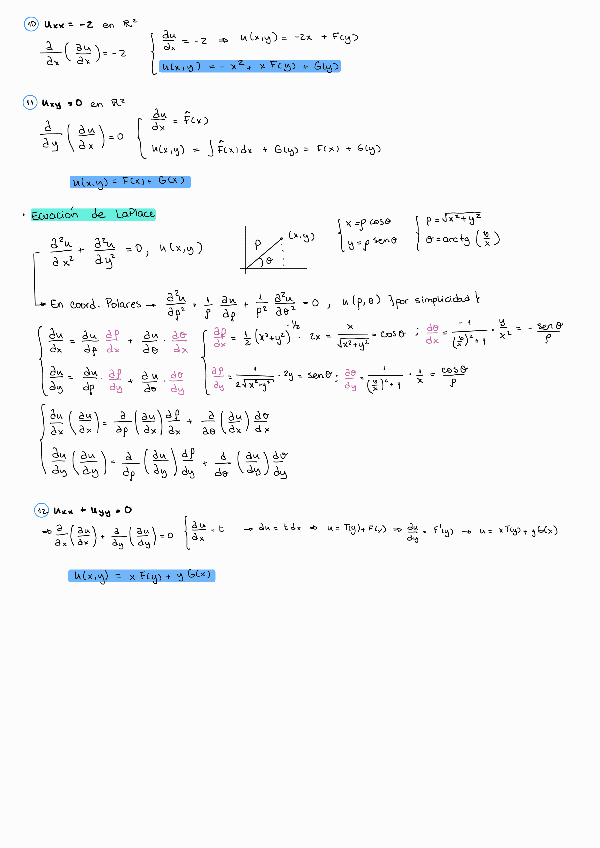 10 uxx = -2 en ℝ²
∂/∂x (∂u/∂x) = -2 { ∂u/∂x = -2 ⇒ u(x,y) = -2x + F(y)
u(x,y) = -x² + x F(y) + G(y)
11 uxy = 0 en ℝ²
∂/∂y (∂u/∂x) = 0 { ∂u/∂x = F̂(x)
u(x,y) = ∫ F̂(x)dx + G(y) = F(x) + G(y)
u(x,y) = F(x) + G(x)
· Ecuación de LaPlace
∂²u/∂x² + ∂²u/∂y² = 0, u(x,y)
ρ θ (x,y)
{ x = ρ cosθ
y = ρ senθ
{ ρ = √x²+y²
θ = arctg (y/x)
→ En coord. Polares → ∂²u/∂ρ² + 1/ρ ∂u/∂ρ + 1/ρ² ∂²u/∂θ² = 0, u(ρ,θ) } por simplicidad {
{ ∂u/∂x = ∂u/∂ρ · ∂ρ/∂x + ∂u/∂θ · ∂θ/∂x { ∂ρ/∂x = 1/2 (x²+y²)^-1/2 · 2x = x/√x²+y² = cosθ ; ∂θ/∂x = -1/((y/x)²+1) · y/x² = - senθ/ρ
∂u/∂y = ∂u/∂ρ · ∂ρ/∂y + ∂u/∂θ · ∂θ/∂y ∂ρ/∂y = 1/2√x²+y² · 2y = senθ ; ∂θ/∂y = 1/((y/x)²+1) · 1/x = cosθ/ρ
{ ∂u/∂x (∂u/∂x) = ∂/∂ρ (∂u/∂x) ∂ρ/∂x + ∂/∂θ (∂u/∂x) ∂θ/∂x
∂u/∂y (∂u/∂y) = ∂/∂ρ (∂u/∂y) ∂ρ/∂y + ∂/∂θ (∂u/∂y) ∂θ/∂y
12 uxx + uyy = 0
⇒ ∂/∂x (∂u/∂x) + ∂/∂y (∂u/∂y) = 0 { ∂u/∂x = t → ∂u = t dx ⇒ u = T(y) + F(y) ⇒ ∂u/∂y = F'(y) → u = x T(y) + y G(x)
u(x,y) = x F(y) + y G(x)